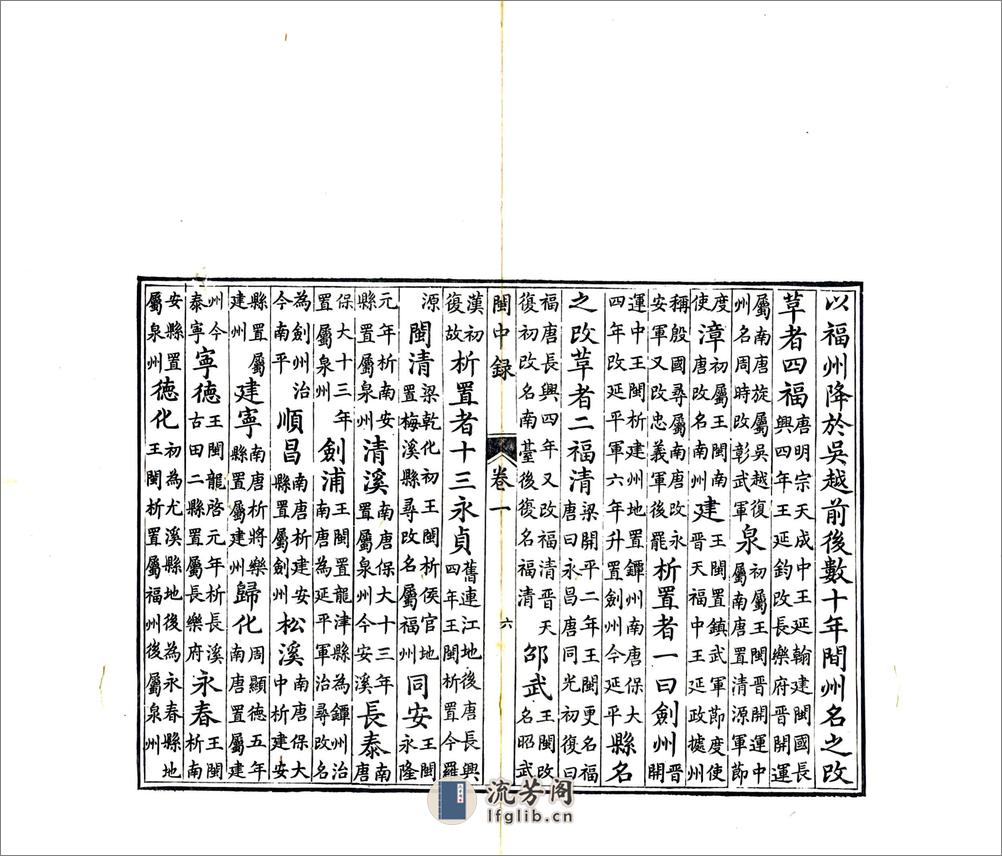 以福州降於吳越前後數十年間州名之改
草者四福唐明宗天成中王延翰建閩國長興四年王延鈞改長樂府晉開運
屬南唐旋屬吳越復州名周時改彰武軍泉初屬王閩晉開運中屬南唐置清源軍節
度使漳初屬王閩南唐改名南州建王閩置鎮武軍節度使晉天福中王延政據州
稱殷國尋屬南唐改永安軍又改忠義軍後罷析置者一曰劍州晉開
運中王閩析建州地置鐔州南唐保大四年改延平軍六年升置劍州今延平縣名
之改草者二福清梁開平二年王閩更名福唐曰永昌唐同光初復曰
福唐長興四年又改福清晉天復初改名南臺後復名福清邵武王閩改名昭武
閩中録 卷一 六
漢初復故析置者十三永貞舊連江地後唐長興四年王閩析置今羅
源閩清梁乾化初王閩析侯官地置梅溪縣尋改名屬福州同安王閩永隆
元年析南安縣置屬泉州清溪南唐保大十三年置屬泉州今安溪長泰南唐
保大十三年置屬泉州劍浦王閩置龍津縣為鐔州治南唐為延平軍治尋改名
為劍州治今南平順昌南唐析建安縣置屬劍州松溪南唐保大中析建安
縣置屬建州建寧南唐析將樂縣置屬建州歸化周顯德五年南唐置屬建
州今泰寧寧德王閩龍啓元年析長溪古田二縣置屬長樂府永春王閩析南
安縣置屬泉州德化初為尤溪縣地後為永春縣地王閩析置屬福州後屬泉州
流芳阁
lfglib.cn